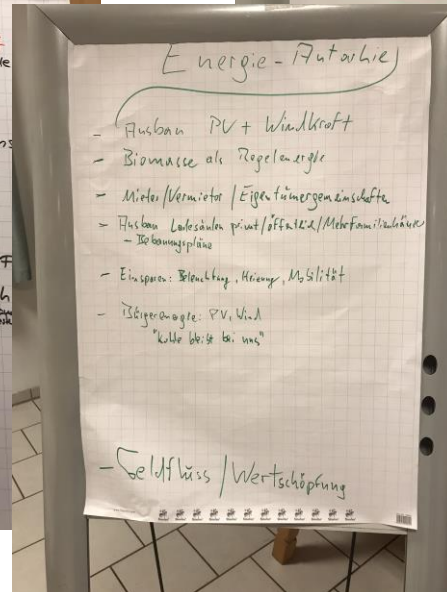 Energie-Autarkie
- Ausbau PV + Windkraft
- Biomasse als Regelenergie
- Mieter/Vermieter/Eigentümergemeinschaften
- Ausbau Ladesäulen privat/öffentlich/Mehrfamilienhäuser
- Bebauungspläne
- Einsparen: Beleuchtung, Heizung, Mobilität
- Bürgerenergie: PV, Wind
"Kohle bleibt bei uns"
- Geldfluss/Wertschöpfung